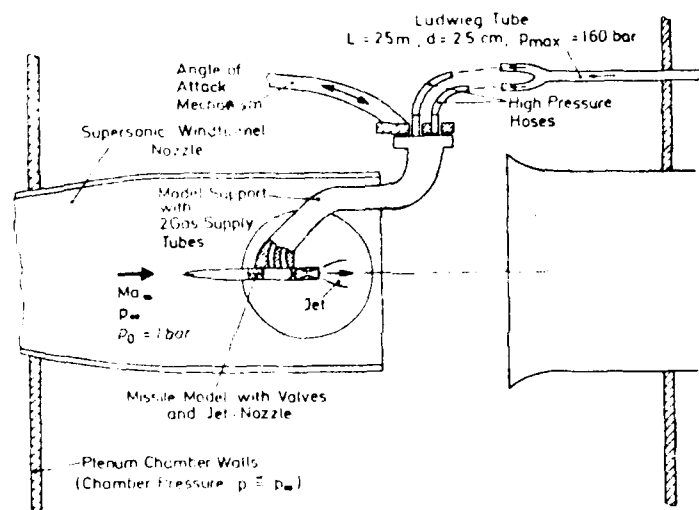 Ludwieg Tube
L = 25m, d = 2.5 cm, pmax = 160 bar
Angle of
Attack
Mechanism
High Pressure
Hoses
Supersonic Windtunnel
Nozzle
Model Support
with
2Gas Supply
Tubes
Ma∞
p∞
p0 = 1 bar
Jet
Missile Model with Valves
and Jet-Nozzle
Plenum Chamber Walls
(Chamber Pressure p ≡ p∞)